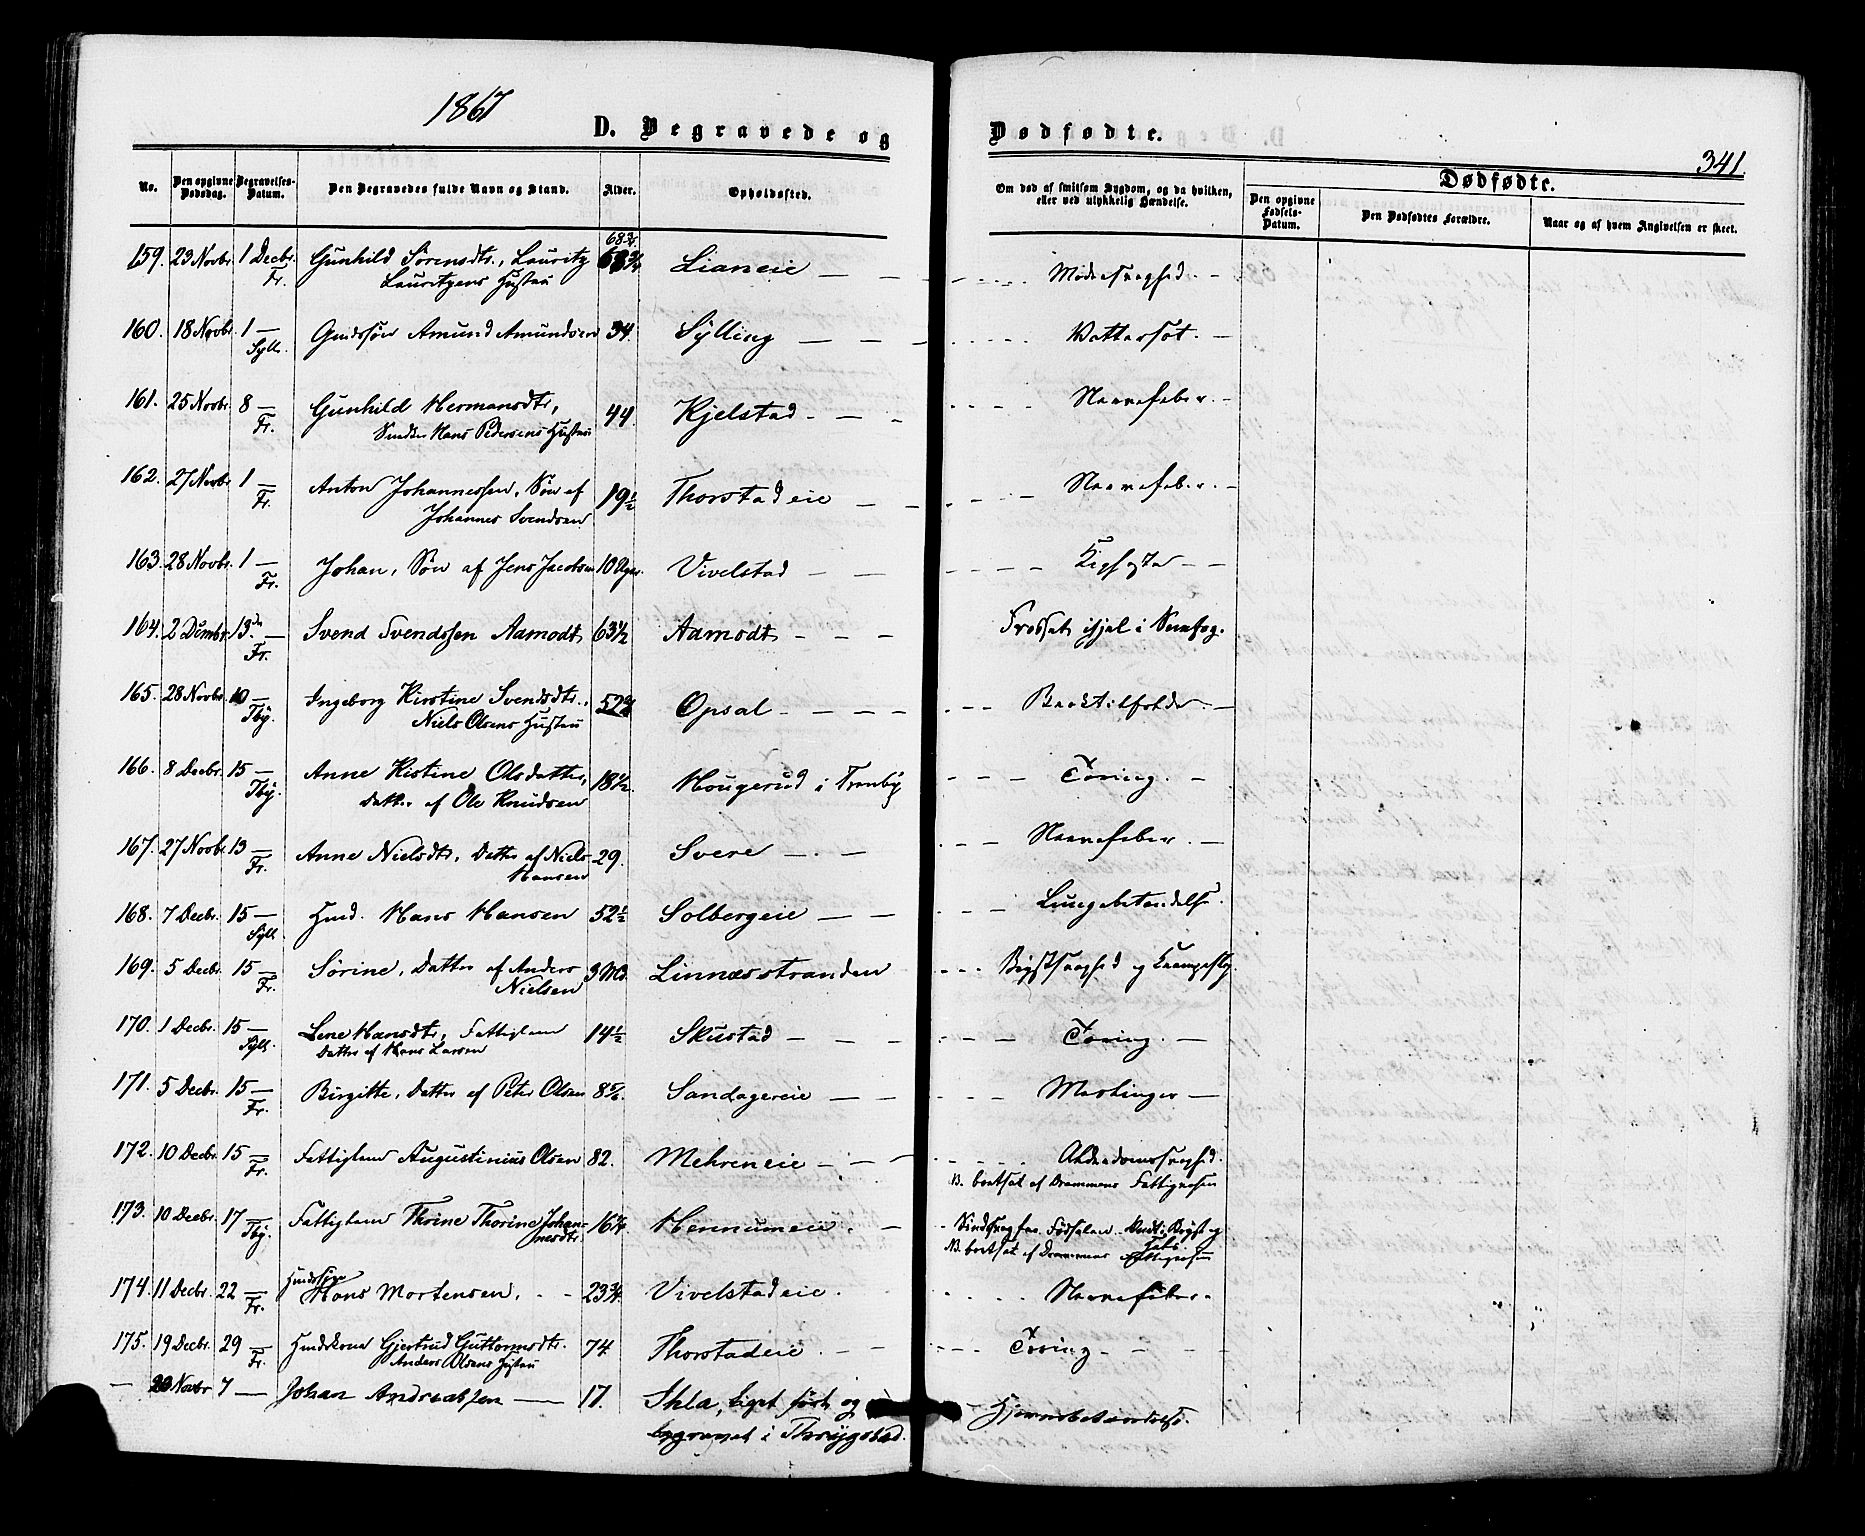 1867
D. Begravede og Dødfødte.
341.
No.
Den opgivne Dødsdag.
Begravelses-Datum.
Den Begravedes fulde Navn og Stand.
Alder.
Opholdssted.
Om død af smitsom Sygdom, og da hvilken, eller ved ulykkelig Hændelse.
Dødfødte.
Den opgivne Fødsels-Datum.
Den Dødfødtes Forældre.
Naar og af hvem Angivelsen er skeet.
159. 23 Novbr. 1 Decbr. Fr. Gunhild Sørensdtr., Lauritz 68¾ Lianeie
Lauritzens Hustru
160. 18 Novbr. 1 — Syll. Amund Amundsen 34. Sylling — Vattersot.
161. 25 Novbr. 8 — Fr. Gunhild Hermansdtr., 44 Kjelstad — Nervefeber.
Hans Pedersens Hustru
162. 27 Novbr. 1 — Fr. Anton Johannessen, Søn af 19½ Thorstadeie — Nervefeber.
Johannes Svendsen
163. 28 Novbr. 1 — Fr. Johan, Søn af Jens Jacobsen 10 Uger. Vivelstad —
164. 2 Decmbr. 13. — Fr. Svend Svendssen Aamodt 63½ Aamodt — ihjel i
165. 28 Novbr. 10 — Tby. Ingeborg Kirstine Svendsdtr., Opsal —
Niels Olsens Hustru
166. 8 Decbr. 15 — Tby. Anne Kistine Olsdatter, 18½ Hougerud i Tranby — Tæring.
Datter af Ole Knudsen
167. 27 Novbr. 13 — Fr. Anne Nielsdtr., Datter af Niels 29. Svere — Nervefeber.
Hansen
168. 7 Decbr. 15 — Syll. Hmd. Hans Hansen 52½ Solbergeie — Lungebetændelse.
169. 5 Decbr. 15 — Fr. Sørine, Datter af Anders 3 Md. Linnæsstranden — Brystsvaghed og
Nielsen
170. 1 Decbr. 15 — Syll. Lene Hansdtr., Fattiglem 14½ Skustad — Tæring.
Datter af Hans Larsen
171. 5 Decbr. 15 — Fr. Birgitte, Datter af Peter Olsen Sandagereie — Meslinger —
172. 10 Decbr. 15 — Fr. Fattiglem Augustinius Olsen 82. Mehreneie — Alderdomssvaghed.
N. bortsat af Drammens Fattigvæsen
173. 10 Decbr. 17 — Tby. Fattiglem Thrine Thorine Johan- Hennumeie. — Sindssvag fra Fødselen. Vand i Bryst og
nesdtr. N. bortsat af Drammens Fattigvæsen
174. 11 Decbr. 22 — Fr. Hans Mortensen. 23¾ Vivelstadeie. Nervefeber.
175. 19 Decbr. 29 — Fr. Huuskone Gjertrud Guttormsdtr. 74 Thorstadeie. — Tæring —
Anders Olsens Hustru
— 20 Novbr 7 — Johan Andreassen — 17. Liget ført og — Hjernebetændelse.
begravet i Thrygstad.